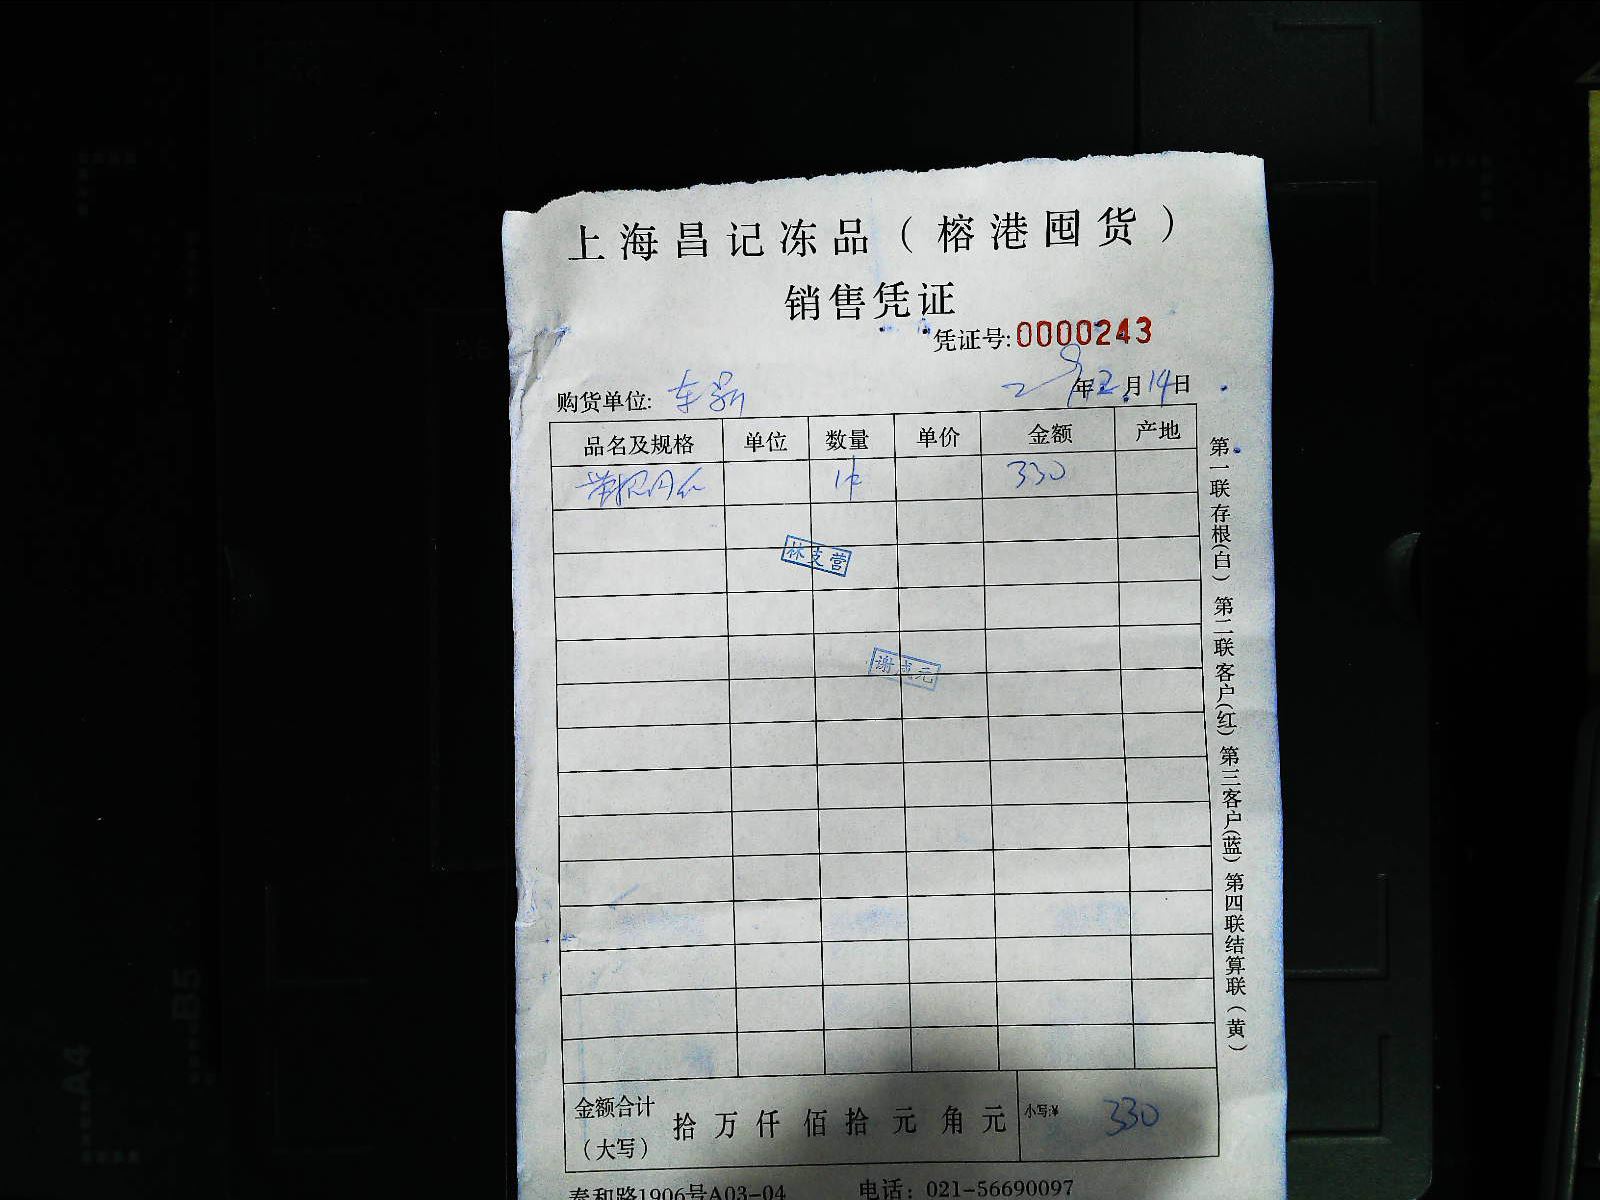 上海昌记冻品（榕港囤货）
销售凭证
凭证号:0000243
购货单位:
年2月14日
品名及规格 单位 数量 单价 金额 产地
1件 330
林支营
谢 元
金额合计（大写） 拾万仟佰拾元角元 小写:¥ 330
泰和路1906号A03-04 电话：021-56690097
第一联存根(白) 第二联客户(红) 第三客户(蓝) 第四联结算联(黄)
A4
B5